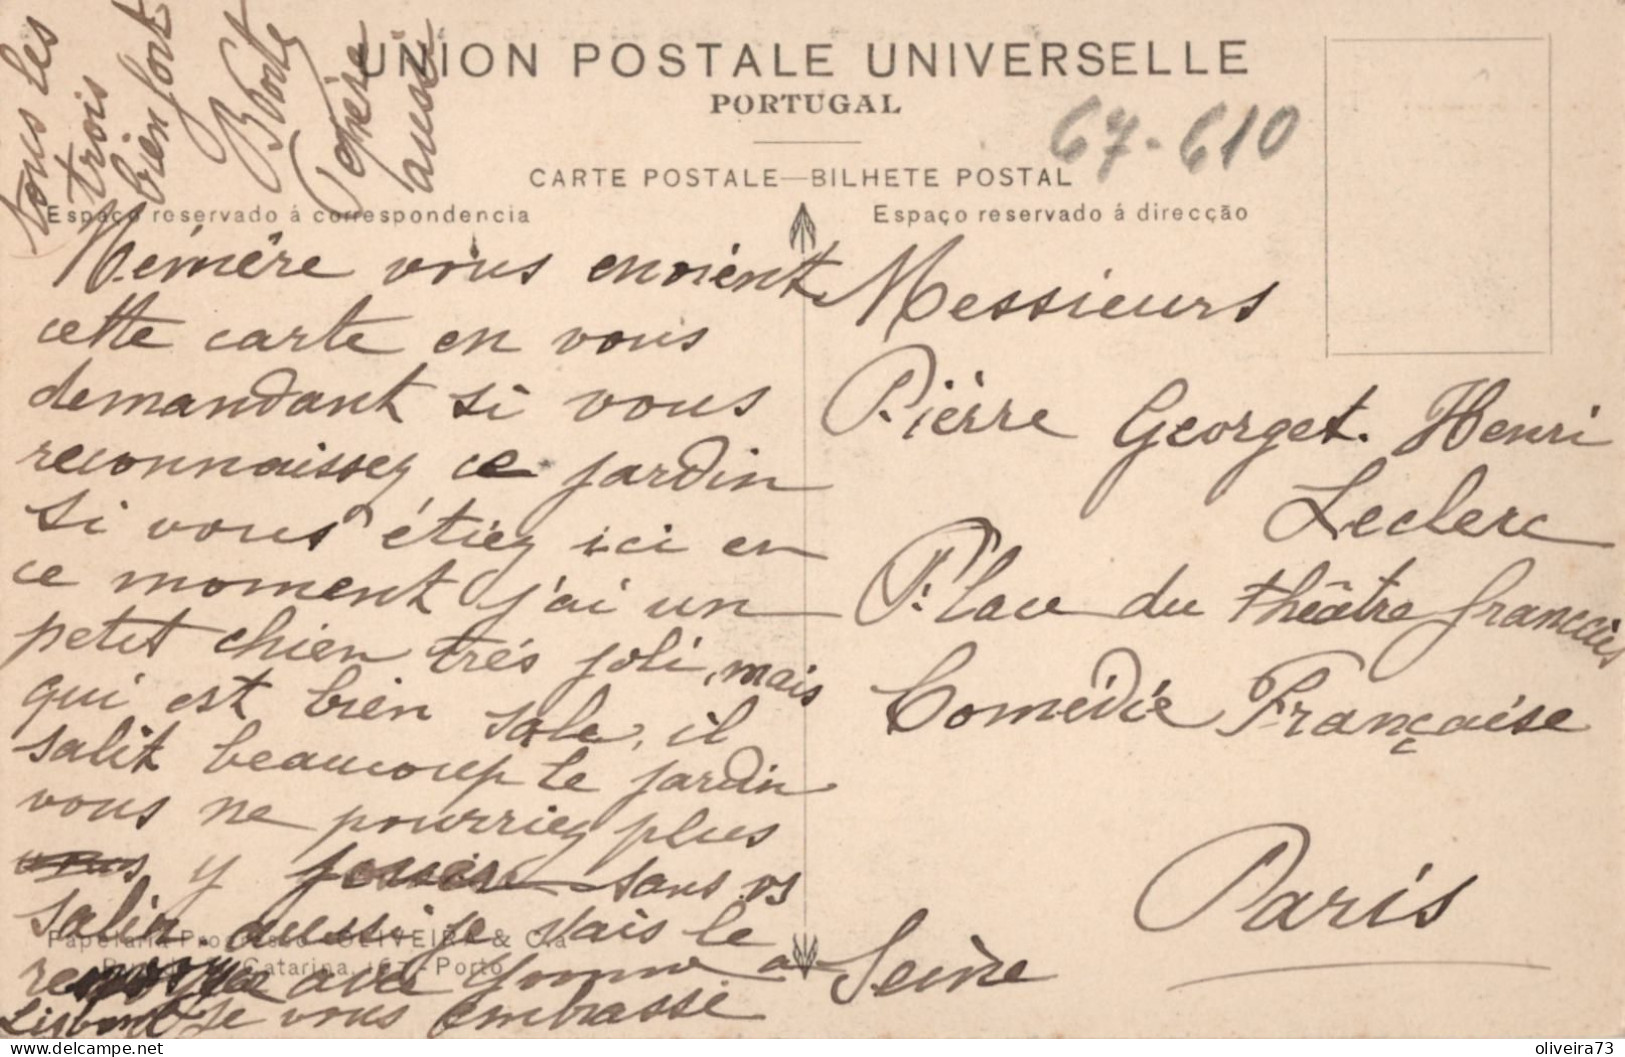 UNION POSTALE UNIVERSELLE
PORTUGAL
CARTE POSTALE—BILHETE POSTAL
67-610
Espaço reservado á correspondencia
Espaço reservado á direcção
Mémére vous envoient
cette carte en vous
demandant si vous
reconnaissez ce jardin
si vous étiez ici en
ce moment j'ai un
petit chien trés joli, mais
qui est bien sale, il
salit beaucoup le jardin
vous ne pourriez plus
vous y jouer sans vs
salir. aussi je vais le
avec Yonne a
Lisbonne Je vous embrasse
tous les
trois
bien fort
aussi
Messieurs
Pièrre Georget. Henri
Leclerc
Place du théâtre français
Comédie Française
Paris
Seine
Papelaria OLIVEIRA & C.a
Catarina, 167-Porto
oliveira73